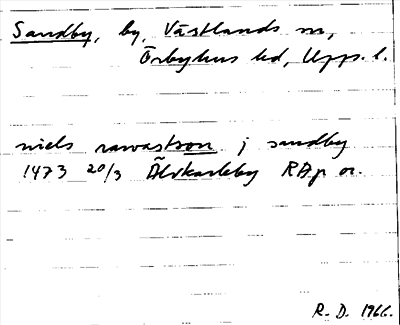 Sandby, by, Västlands sn,
Örbyhus hd, Upps. l.
niels rawastson j sandby
1473 20/3 Älvkarleby RAp or.
R. D. 1966.